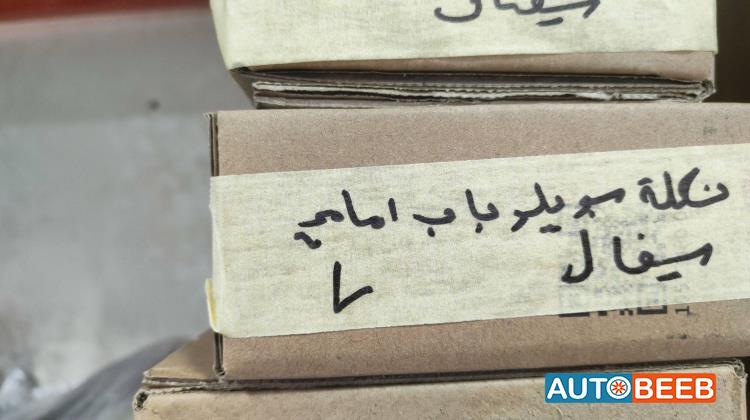 سيفال
نكلة سويلو باب امامي
سيفال
L
AUTOBEEB